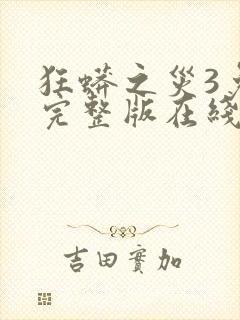 狂蟒之災3
完整版在綫
吉田實加